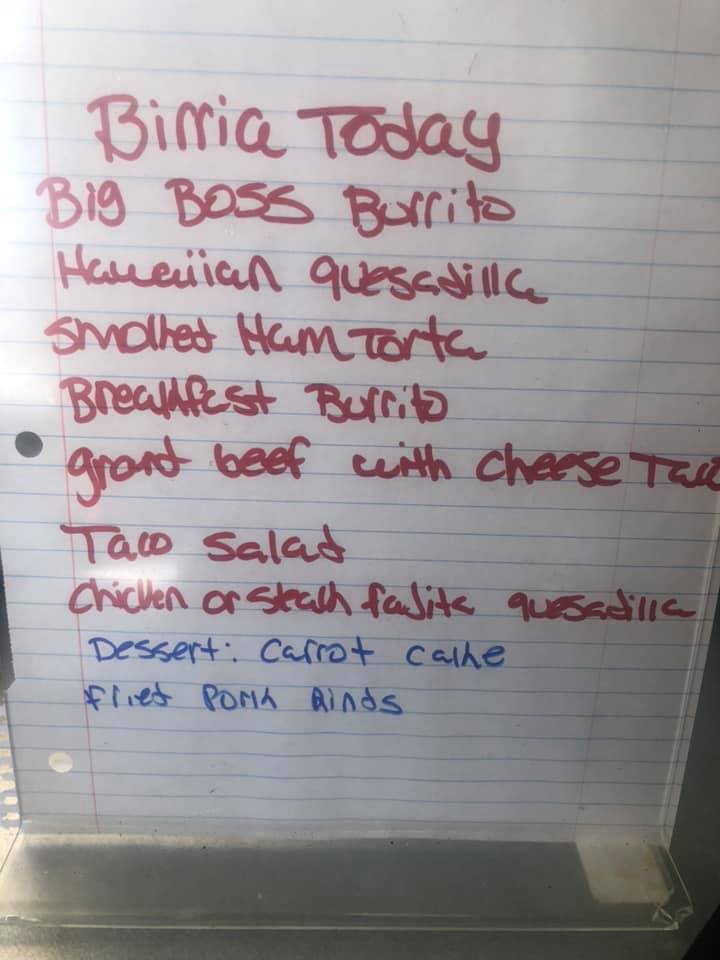 Birria Today
Big Boss Burrito
Hawaiian quesadilla
Smoked Ham Torta
Breakfast Burrito
grand beef with cheese Taco
Taco Salad
Chicken or steak fajita quesadilla
Dessert: Carrot cake
Fried Pork Rinds